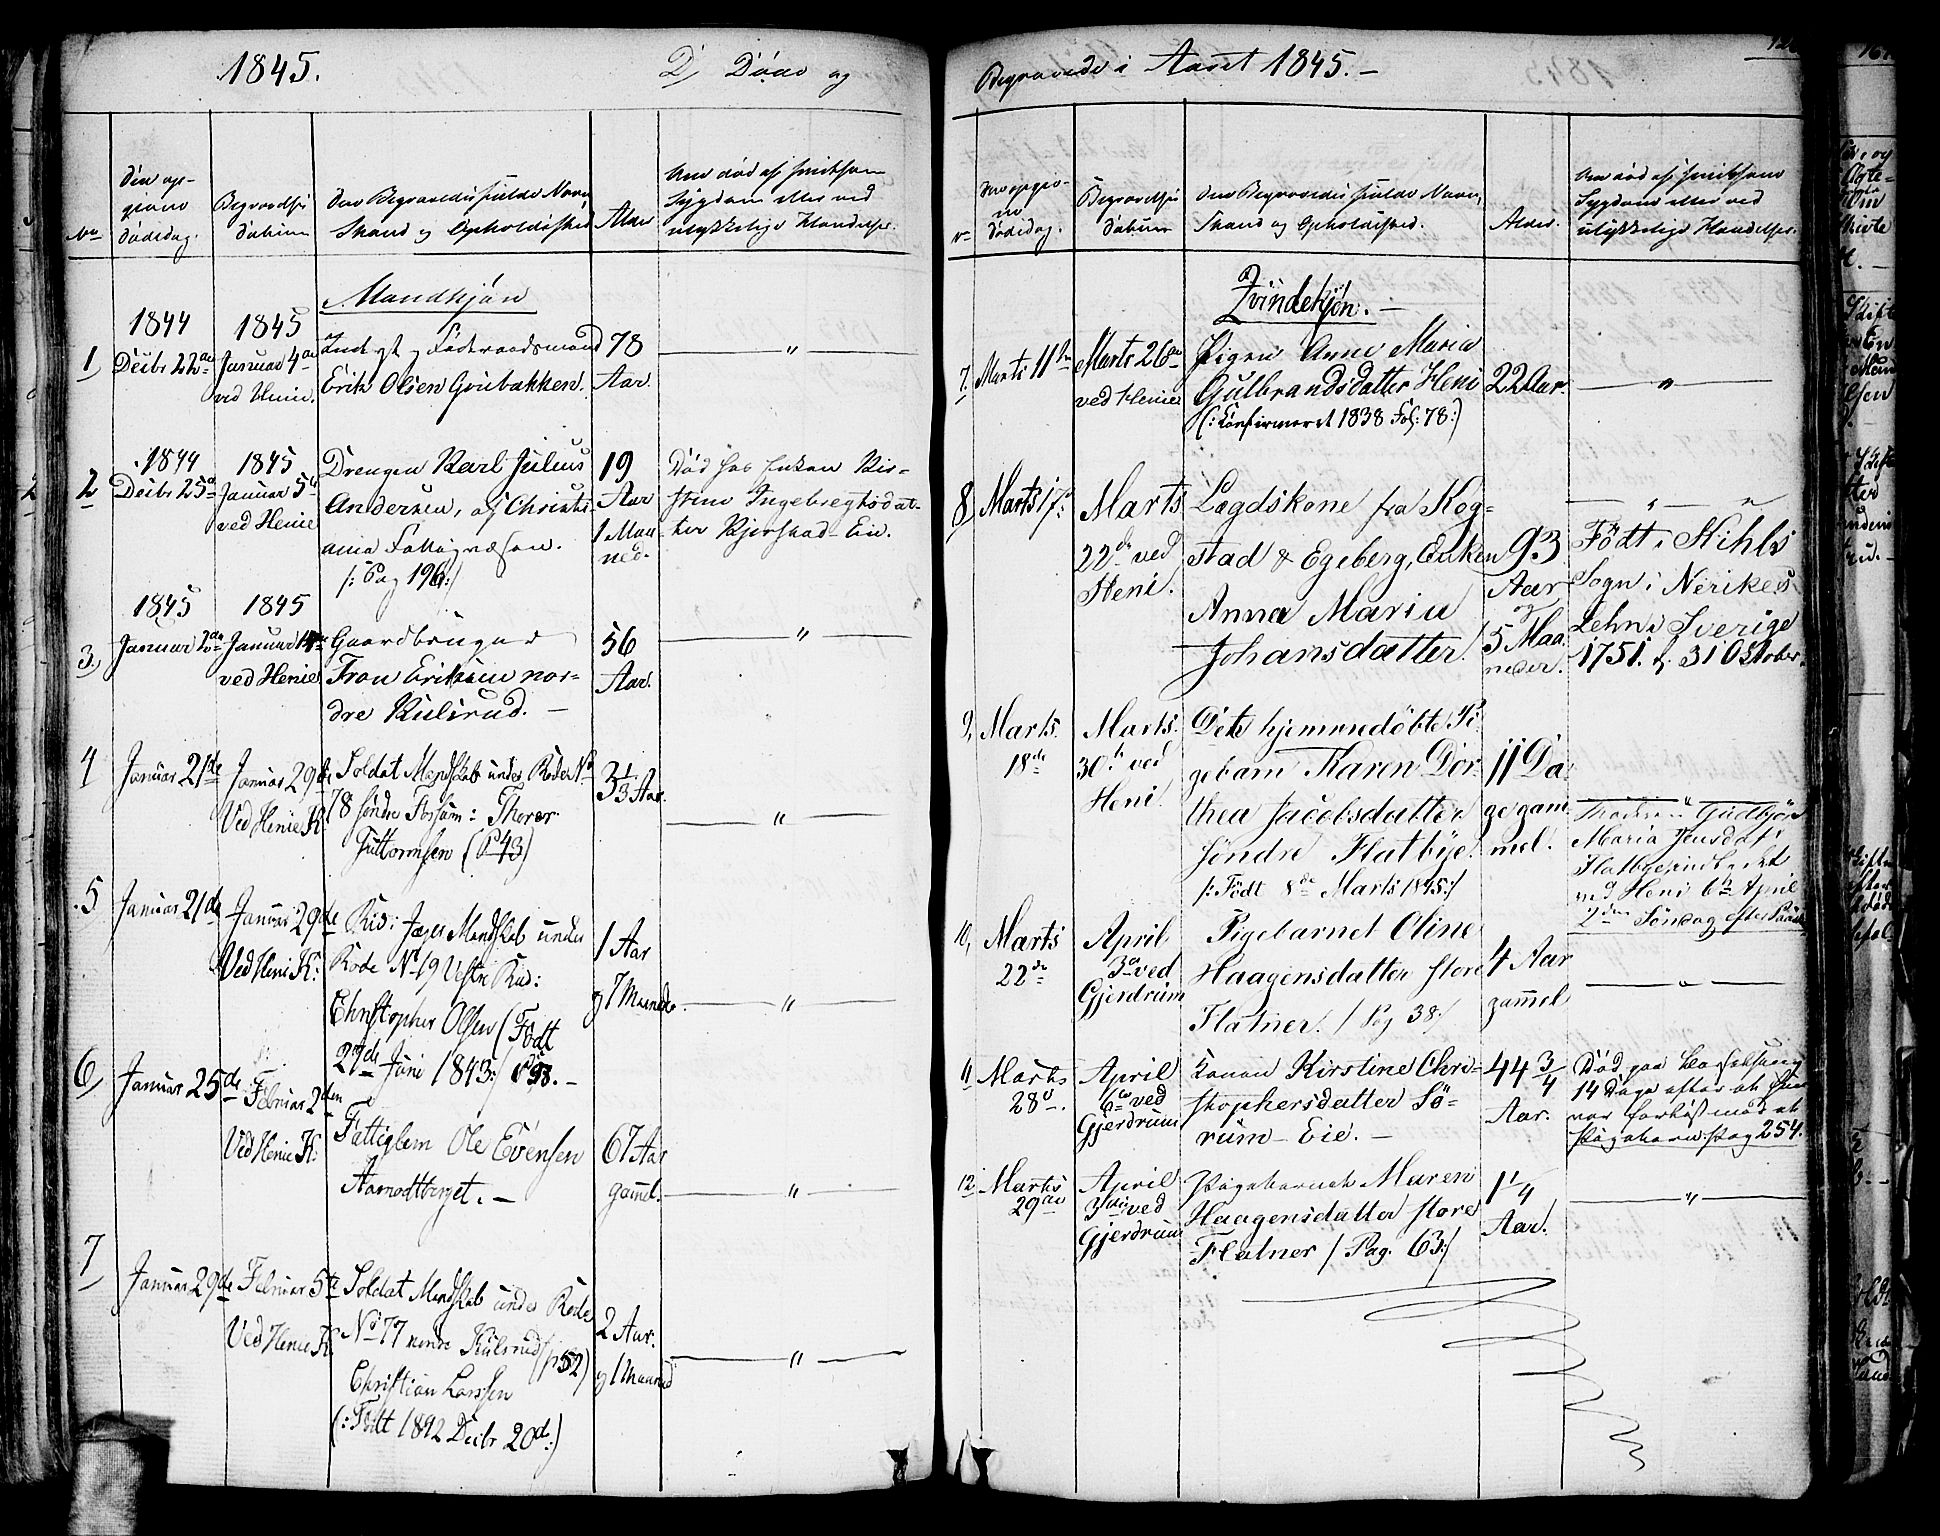 1845.
D, Døde og
No
Den op-
givne
Dødsdag.
Begravelses
Datum
Den Begravedes fulde Navn,
Stand og Opholdssted
Alder
Om død af smitsom
Sygdom eller ved
ulykkelige Hændelser.
Mandkjön
1
1844
Decbr 22
1845
Januar 4
ved Henie.
Erik Olsen Grubakken.
78
Aar.
2
1844
Decbr 25
1845
Januar 5
ved Henie
Drengen Karl Julius
Andersen, af Christi-
ania
/: Pag 196:/
19
Aar
1 Maa
ned.
Død hos Enken Kir-
stine Ingebregtsdat-
ter Kjerstad-Eie.
3.
1845
Januar
1845
Januar
ved Henie
Gaardbruger
Tron Eriksen nor-
dre Kulsrud. —
56
Aar.
4
Januar 21de
Januar 29de
Ved Henie K
Soldat Mandskab under Rode No
78 søndre Fossum: Thorer
Guttormsen (P 43)
3⅓ Aar.
5
Januar 21de
Januar 29de
Ved Heni K:
Rid: Jæger Mandskab under
Rode No 19 Vestre Rud:
Christopher Olsen (Födt
27de Juni 1843:/
1 Aar
og 7 Maaneder
6
Januar 25de
Februar 2den
Ved Henie K:
Fattiglem Ole Evensen
Aamodtberget. —
67 Aar
gaml.
7
Januar 29de
Februar 5te
Ved Henie K.
Soldat Mandskab under Rode
No 77 nordre Kulsrud (p 52)
Christian Larssen
(: Födt 1842 Decbr 20de:)
2 Aar.
og 1 Maaned
Begravede i Aaret 1845. —
Den opgiv-
ne
Dødsdag.
Begravelses
Datum
Den Begravedes fulde Navn,
Stand og Opholdssted.
Alder.
Om død af smitsom
Sygdom eller ved
ulykkelige Hændelser.
Qvindekjön. —
7.
Marts 11te
Marts 26de
ved Henie
Pigen Anne Maria
Gulbrandsdatter Heni
(: Confirmeret 1838 Fol: 78:)
22 Aar.
8
Marts 17
Marts
22de ved
Heni.
Lægdskone fra Kog-
stad & Egeberg, Enken
Anna Maria
Johansdatter.
93
Aar
og
5 Maa
neder.
Födt i Kihls
Sogn i Nerikes
Lehn i Sverige
1751. d. 31 Oktober.
9,
Marts.
18de
Marts.
30te ved
Heni.
Det hjemmedöbte Pi-
gebarn Karen Dor-
thea Jacobsdatter
söndre Flatbye.
/: Födt 8de Marts 1845:/
11 Da-
ge gam
mel.
Moderen Gudbjör
Maria Jensdatr
Flatbye indledet
ved Heni 6te April
2den Söndag efter Paaske
10,
Marts
22de
April
3die ved
Gjerdrum
Pigebarnet Oline
Haagensdatter store
Flatner. / Pag 38:/
4 Aar
gammel
11
Marts
28de.
April
6te ved
Gjerdrum
Konen Kirstine Chri-
stophersdatter Sö-
rum-Eie. —
44 ¾
Aar.
Død paa Barselseng
14 Dage efter at hun
var forløst med et
Pigebarn. Pag 254.
12
Marts
29de
April
3die ved
Gjerdrum
Pigebarnet Maren
Haagensdatter store
Flatner / Pag. 63:/
1¼
Aar.